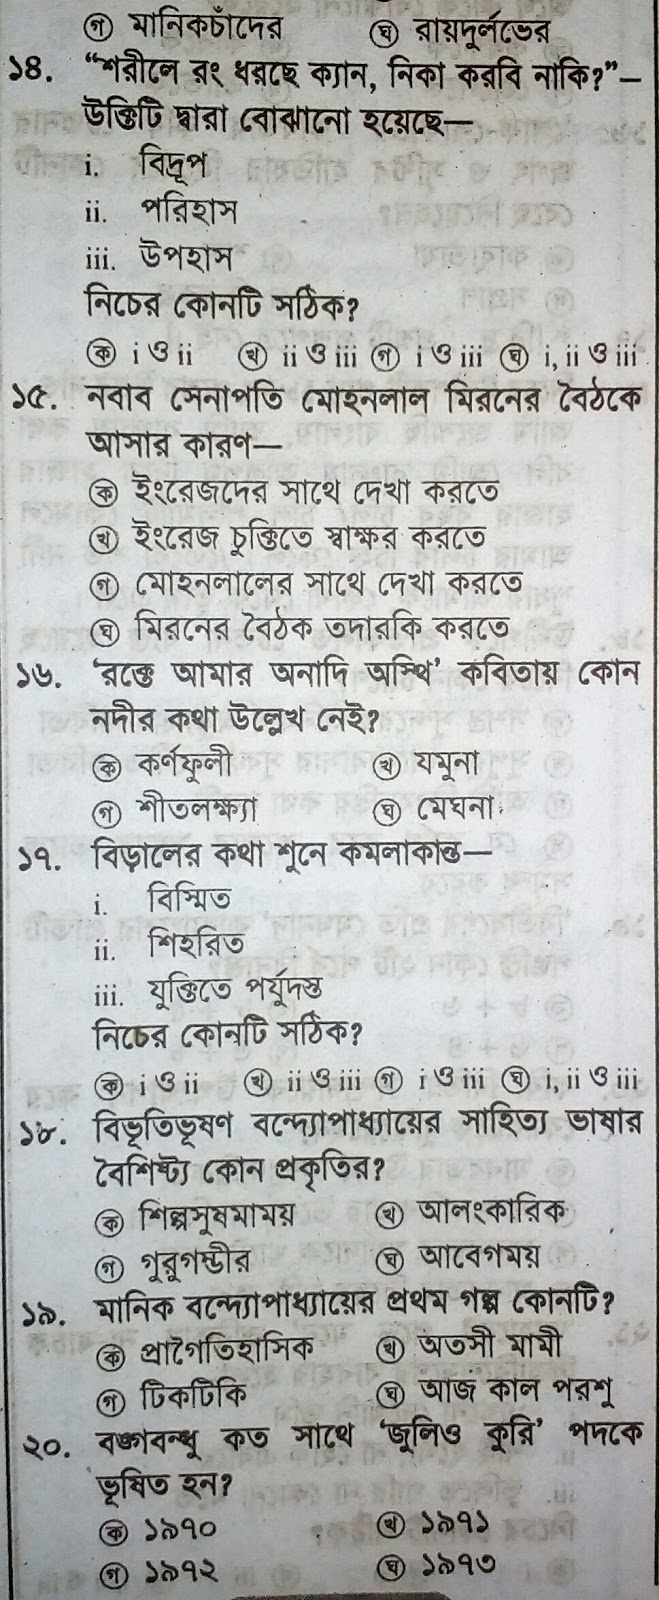 গ মানিকচাঁদের ঘ রায়দুর্লভের
১৪. “শরীলে রং ধরছে ক্যান, নিকা করবি নাকি?”—
উক্তিটি দ্বারা বোঝানো হয়েছে—
i. বিদ্রূপ
ii. পরিহাস
iii. উপহাস
নিচের কোনটি সঠিক?
ক i ও ii খ ii ও iii গ i ও iii ঘ i, ii ও iii
১৫. নবাব সেনাপতি মোহনলাল মিরনের বৈঠকে
আসার কারণ—
ক ইংরেজদের সাথে দেখা করতে
খ ইংরেজ চুক্তিতে স্বাক্ষর করতে
গ মোহনলালের সাথে দেখা করতে
ঘ মিরনের বৈঠক তদারকি করতে
১৬. ‘রক্তে আমার অনাদি অস্থি’ কবিতায় কোন
নদীর কথা উল্লেখ নেই?
ক কর্ণফুলী খ যমুনা
গ শীতলক্ষ্যা ঘ মেঘনা
১৭. বিড়ালের কথা শুনে কমলাকান্ত—
i. বিস্মিত
ii. শিহরিত
iii. যুক্তিতে পর্যুদস্ত
নিচের কোনটি সঠিক?
ক i ও ii খ ii ও iii গ i ও iii ঘ i, ii ও iii
১৮. বিভূতিভূষণ বন্দ্যোপাধ্যায়ের সাহিত্য ভাষার
বৈশিষ্ট্য কোন প্রকৃতির?
ক শিল্পসুষমাময় খ আলংকারিক
গ গুরুগম্ভীর ঘ আবেগময়
১৯. মানিক বন্দ্যোপাধ্যায়ের প্রথম গল্প কোনটি?
ক প্রাগৈতিহাসিক খ অতসী মামী
গ টিকটিকি ঘ আজ কাল পরশু
২০. বঙ্গবন্ধু কত সাথে ‘জুলিও কুরি’ পদকে
ভূষিত হন?
ক ১৯৭০ খ ১৯৭১
গ ১৯৭২ ঘ ১৯৭৩